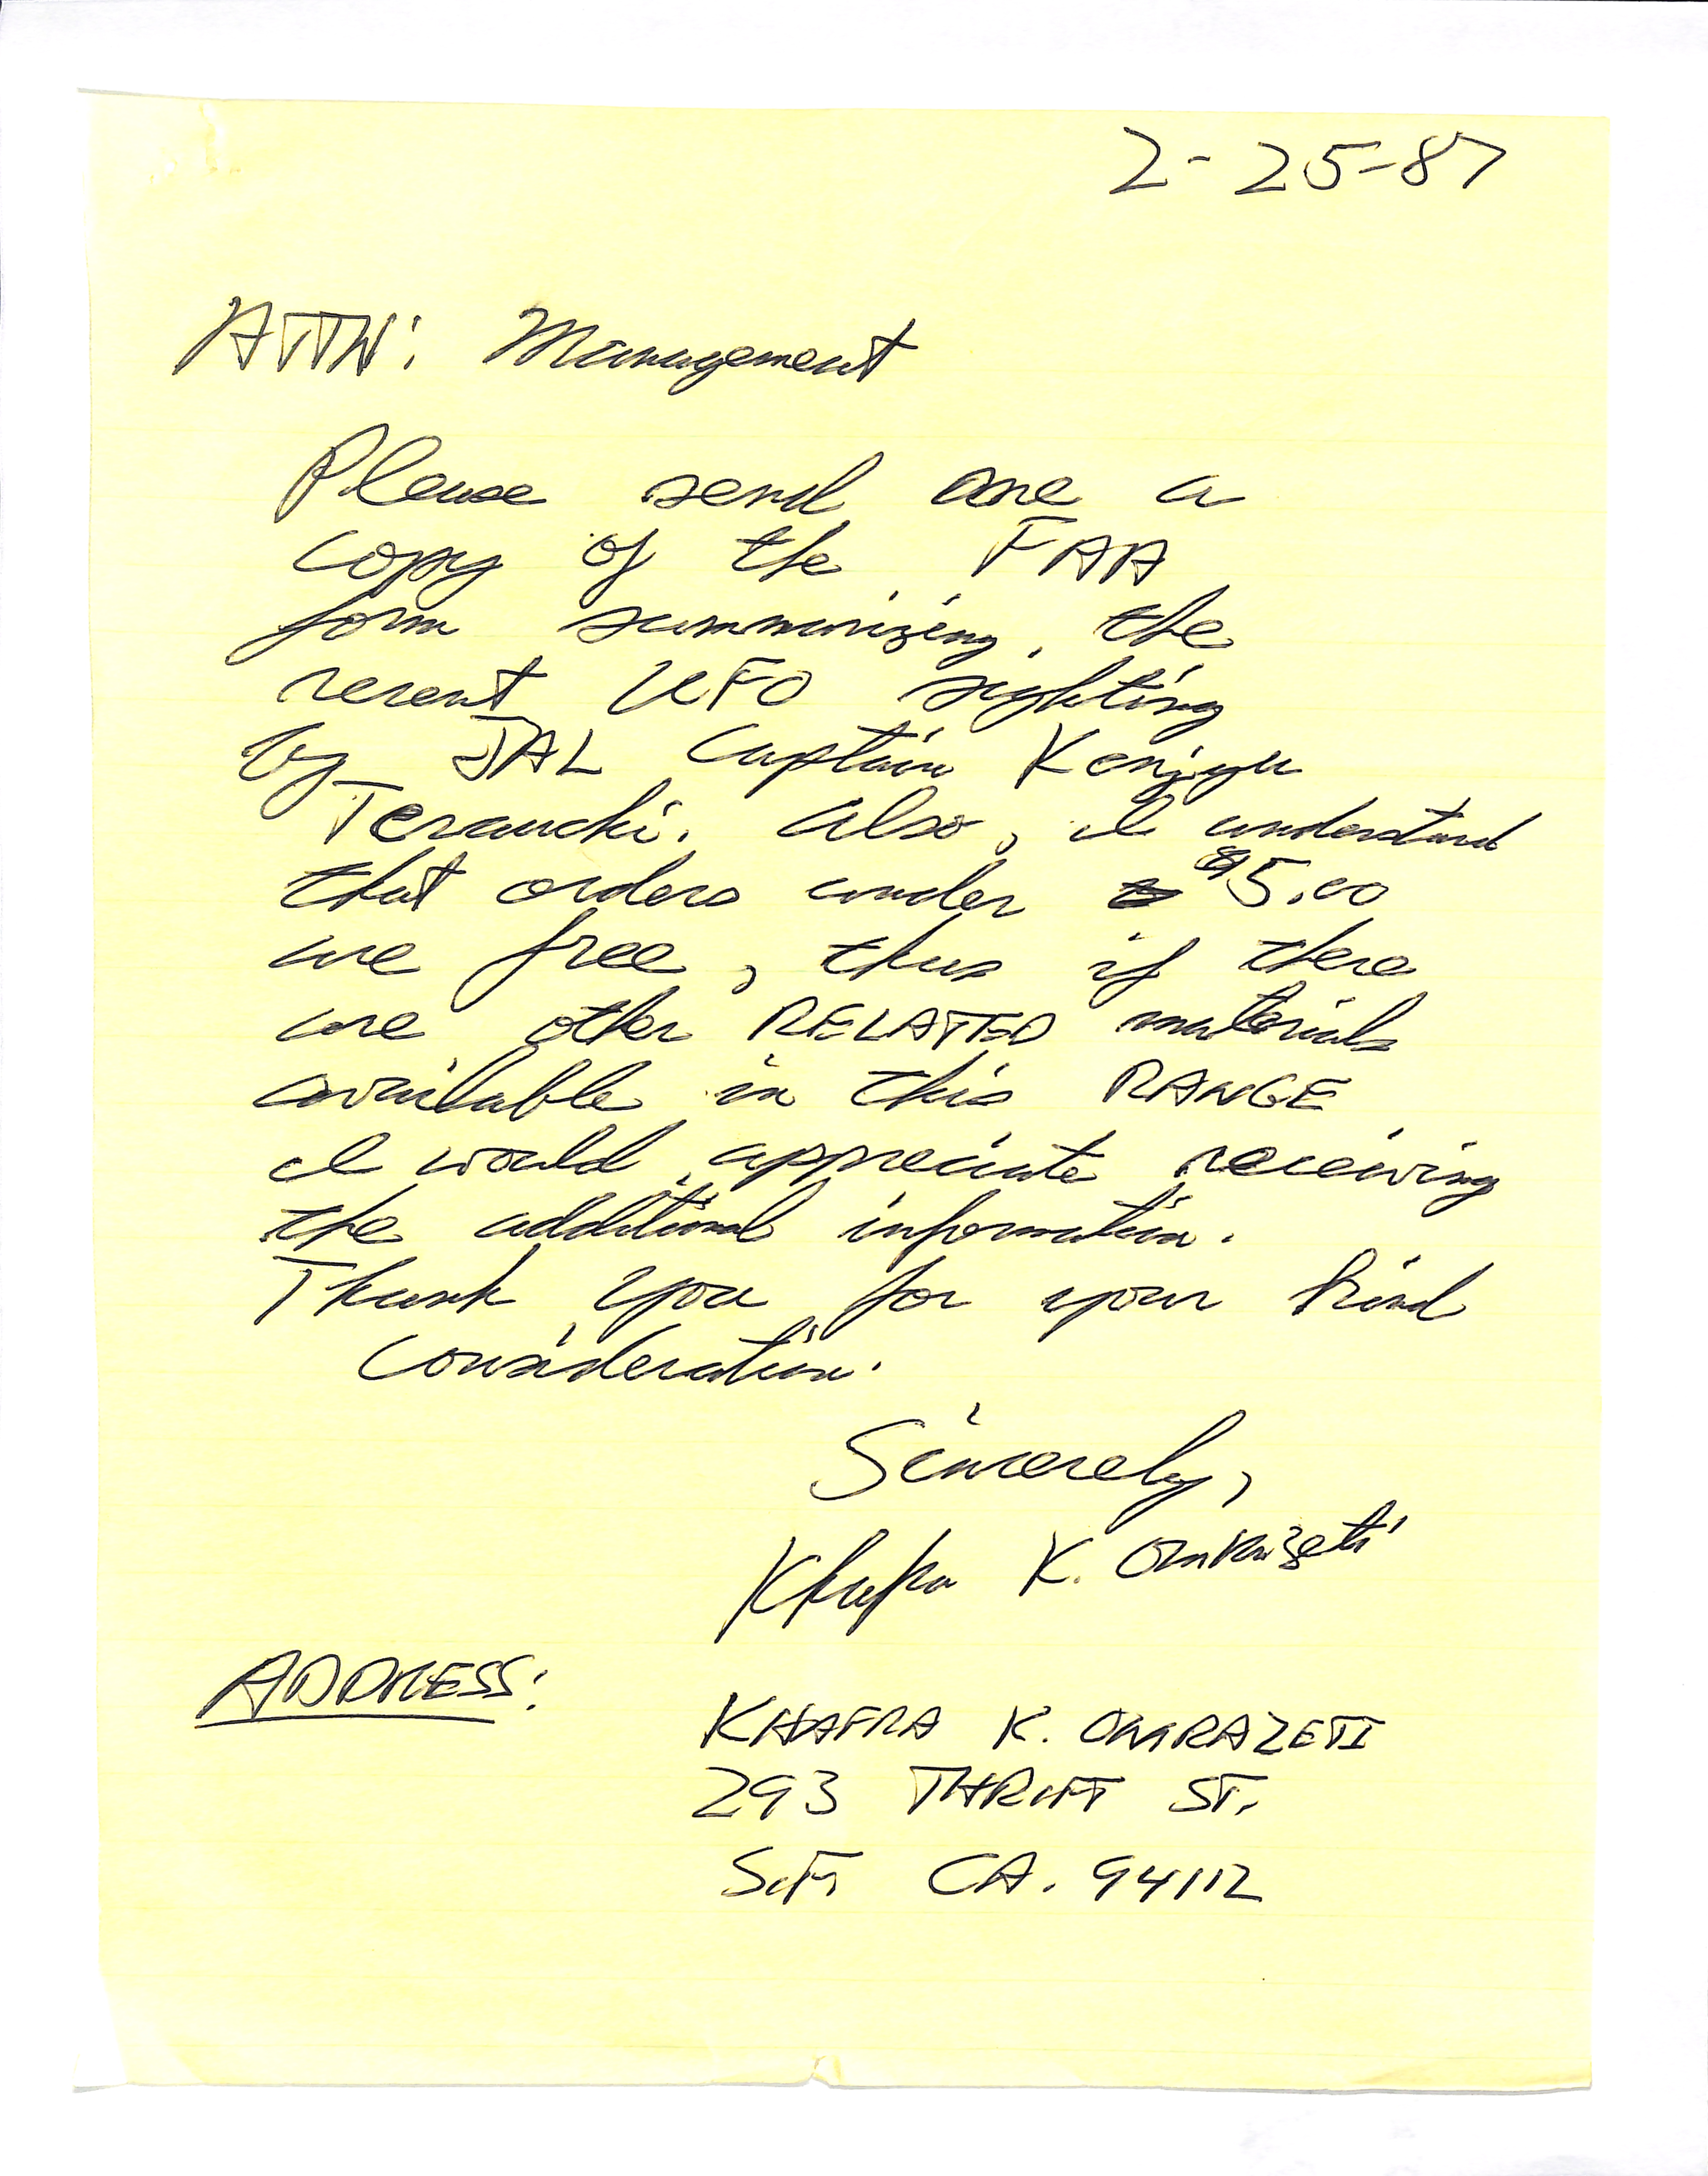 2-25-87
ATTN: Management
Please send me a
copy of the FAA
form summarizing the
recent UFO sighting
by JAL Captain Kenjyu
Terauchi. Also, I understand
that orders under $5.00
are free, thus if there
are other RELATED materials
available in this RANGE
I would appreciate receiving
the additional information.
Thank you for your kind
consideration.
Sincerely,
Khafra K. Omrazeti
ADDRESS:
KHAFRA K. OMRAZETI
293 THRIFT ST.
S.F. CA. 94112